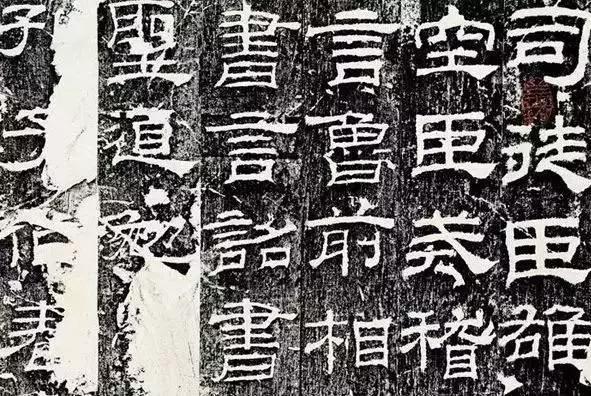 司徒臣雄
空臣戒稽
言魯前相
書言詔書
聖道勉
子作春